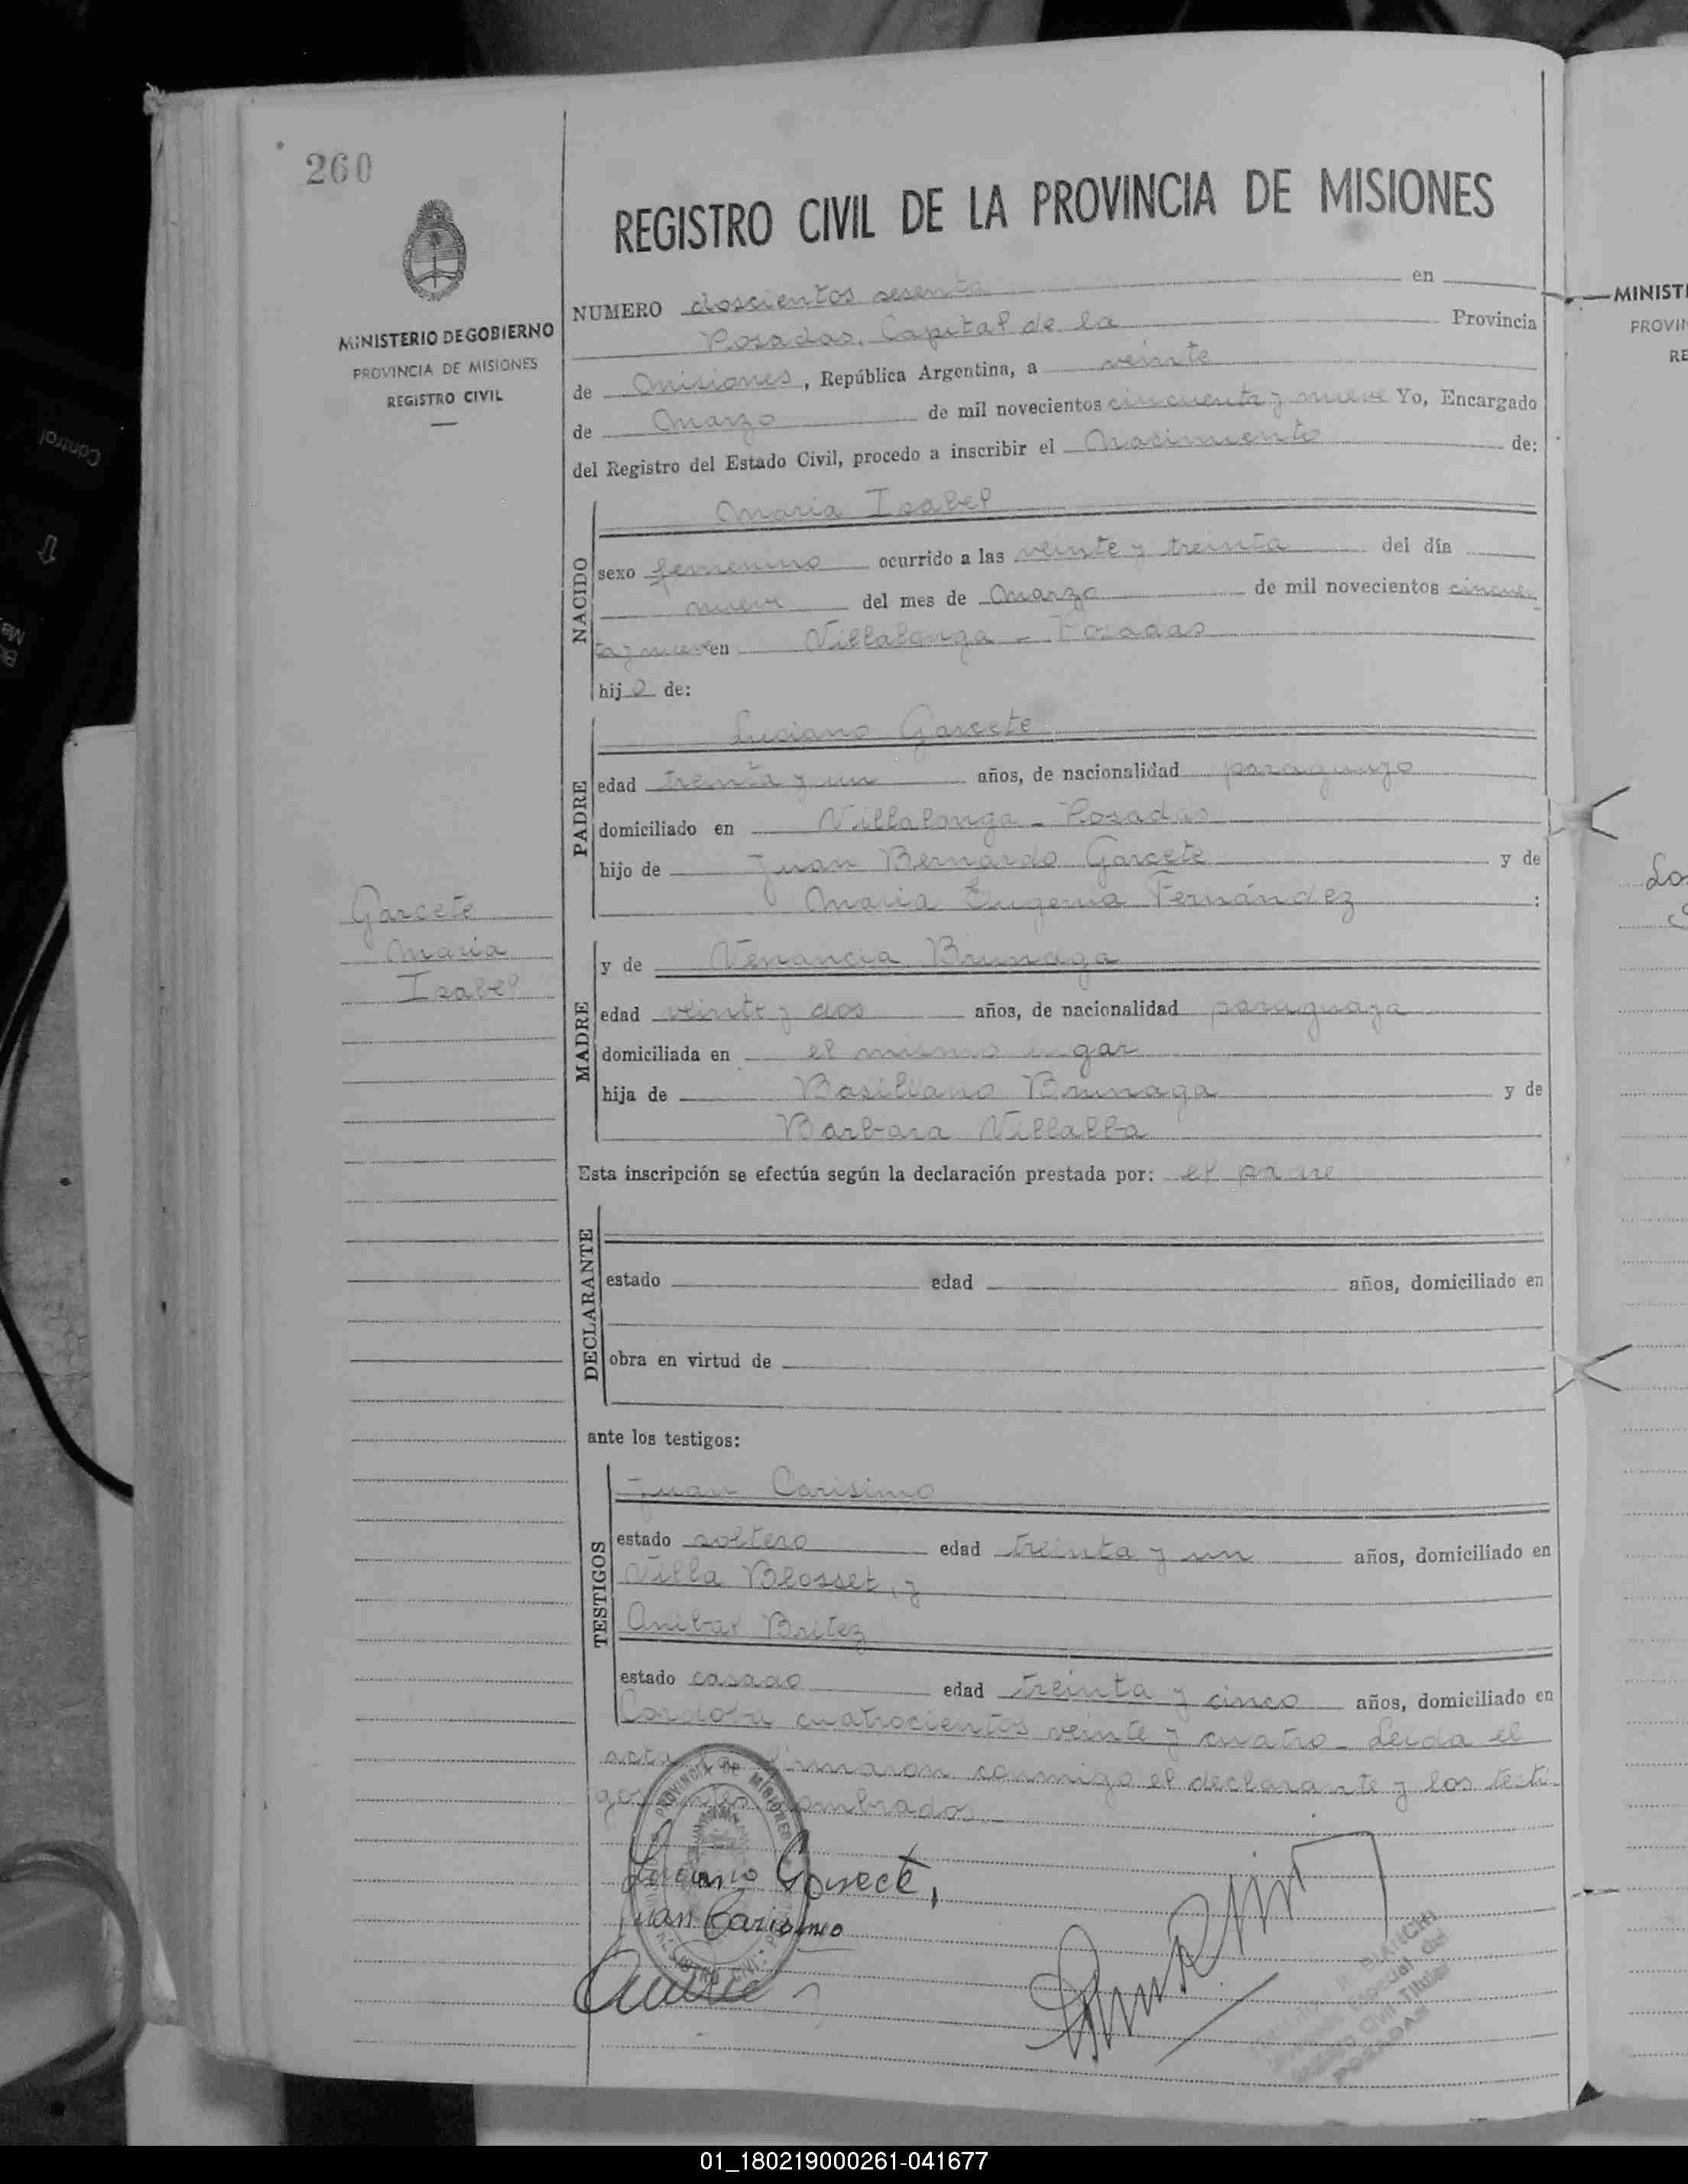 260
REGISTRO CIVIL DE LA PROVINCIA DE MISIONES
MINISTERIO DE GOBIERNO
PROVINCIA DE MISIONES
REGISTRO CIVIL
NUMERO doscientos sesenta en
Posadas, Capital de la Provincia
de Misiones, República Argentina, a veinte
de Marzo de mil novecientos cincuenta y nueve Yo, Encargado
del Registro del Estado Civil, procedo a inscribir el Nacimiento de:
NACIDO
Maria Isabel
sexo femenino ocurrido a las veinte y treinta del día
nueve del mes de Marzo de mil novecientos cincuen
ta y nueve en Villalonga - Posadas
hija de:
PADRE
Luciano Garcete
edad treinta y un años, de nacionalidad paraguayo
domiciliado en Villalonga - Posadas
hijo de Juan Bernardo Garcete y de
Maria Eugenia Fernández :
Garcete
Maria
Isabel
MADRE
y de Venancia Brunaga
edad veinte y dos años, de nacionalidad paraguaya
domiciliada en el mismo lugar
hija de Basiliano Brunaga y de
Barbara Villalba
Esta inscripción se efectúa según la declaración prestada por: el padre
DECLARANTE
estado edad años, domiciliado en
obra en virtud de
ante los testigos:
TESTIGOS
Juan Carisimo
estado soltero edad treinta y un años, domiciliado en
Villa Blosset, y
Anibal Britez
estado casado edad treinta y cinco años, domiciliado en
Cordoba cuatrocientos veinte y cuatro - Leida el
acta la firmaron conmigo el declarante y los testi
gos nombrados
PROVINCIA DE MISIONES
Luciano Garcete,
Juan Carisimo
R. BIANCHI
Especial del
Registro Civil Titular
POSADAS
MINISTE
PROVIN
RE
Control
01_180219000261-041677